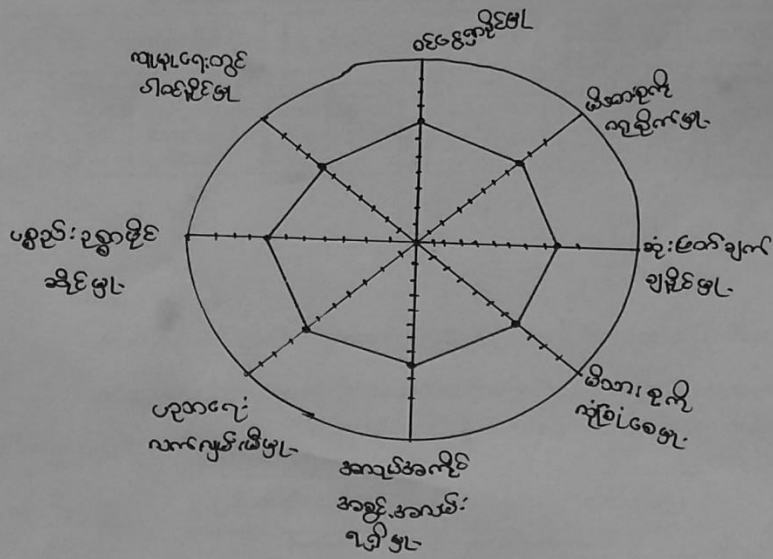 ဝင်ငွေရှာနိုင်မှု
မိသားစုကို
ဂရုစိုက်မှု
ဆုံးဖြတ်ချက်
ချနိုင်မှု
မိသားစုကို
လုံခြုံစေမှု
အလုပ်အကိုင်
အခွင့်အလမ်း
ရရှိမှု
ပညာရေး
လက်လှမ်းမီမှု
ပစ္စည်းဥစ္စာပိုင်
ဆိုင်မှု
လူမှုရေးတွင်
ပါဝင်နိုင်မှု